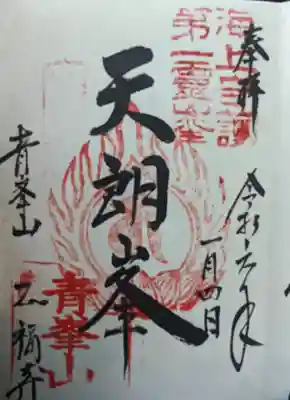 奉拝
令和六年
一月四日
海上守護
第一靈
天朗峯
青峯山
青峯山
正福寺